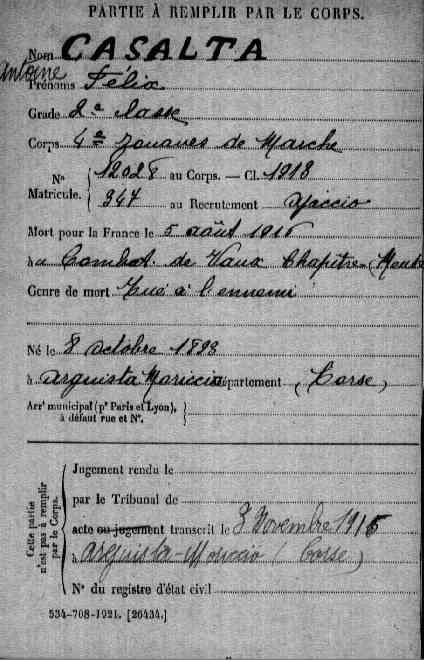 PARTIE À REMPLIR PAR LE CORPS.
Nom CASALTA
Antoine
Prénoms Félix
Grade 2e classe
Corps 4e Zouaves de Marche
No 12028 au Corps. — Cl. 1918
Matricule. 347 au Recrutement Ajaccio
Mort pour la France le 5 août 1916
à au Combat de Vaux Chapitre (Meuse
Genre de mort Tué à l'ennemi
Né le 8 octobre 1898
à Arguista Moriccio Département (Corse)
Arrt municipal (pr Paris et Lyon),
à défaut rue et No.
Cette partie
n'est pas à remplir
par le Corps.
Jugement rendu le
par le Tribunal de
acte ou jugement transcrit le 8 Novembre 1916
à Arguista-Moriccio (Corse)
No du registre d'état civil
534-708-1921. [26434.]